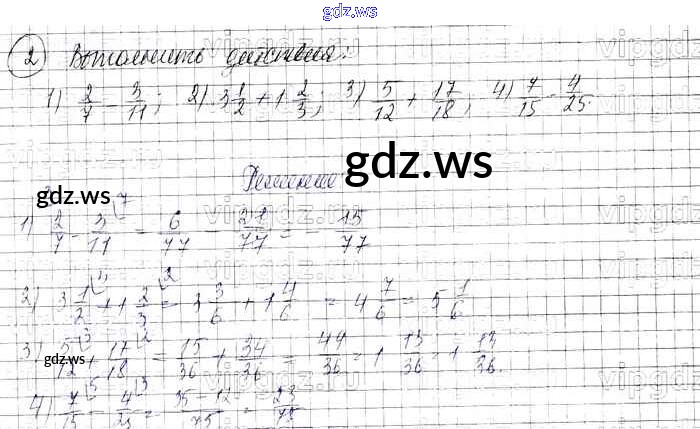 gdz.ws
2) Выполнить действия:
1) 2/7 - 3/11; 2) 3 1/2 + 1 2/3; 3) 5/12 + 17/18; 4) 7/15 - 4/25.
gdz.ws
Решение
gdz.ws
1) 2/7 - 3/11 = 6/77 - 21/77 = - 15/77
2) 3 1/2 + 1 2/3 = 3 3/6 + 1 4/6 = 4 7/6 = 5 1/6
3) 5/12 + 17/18 = 15/36 + 34/36 = 44/36 = 1 13/36 = 1 13/36.
gdz.ws
4) 7/15 - 4/25 = 35 - 12/75 = 23/75
gdz.ws